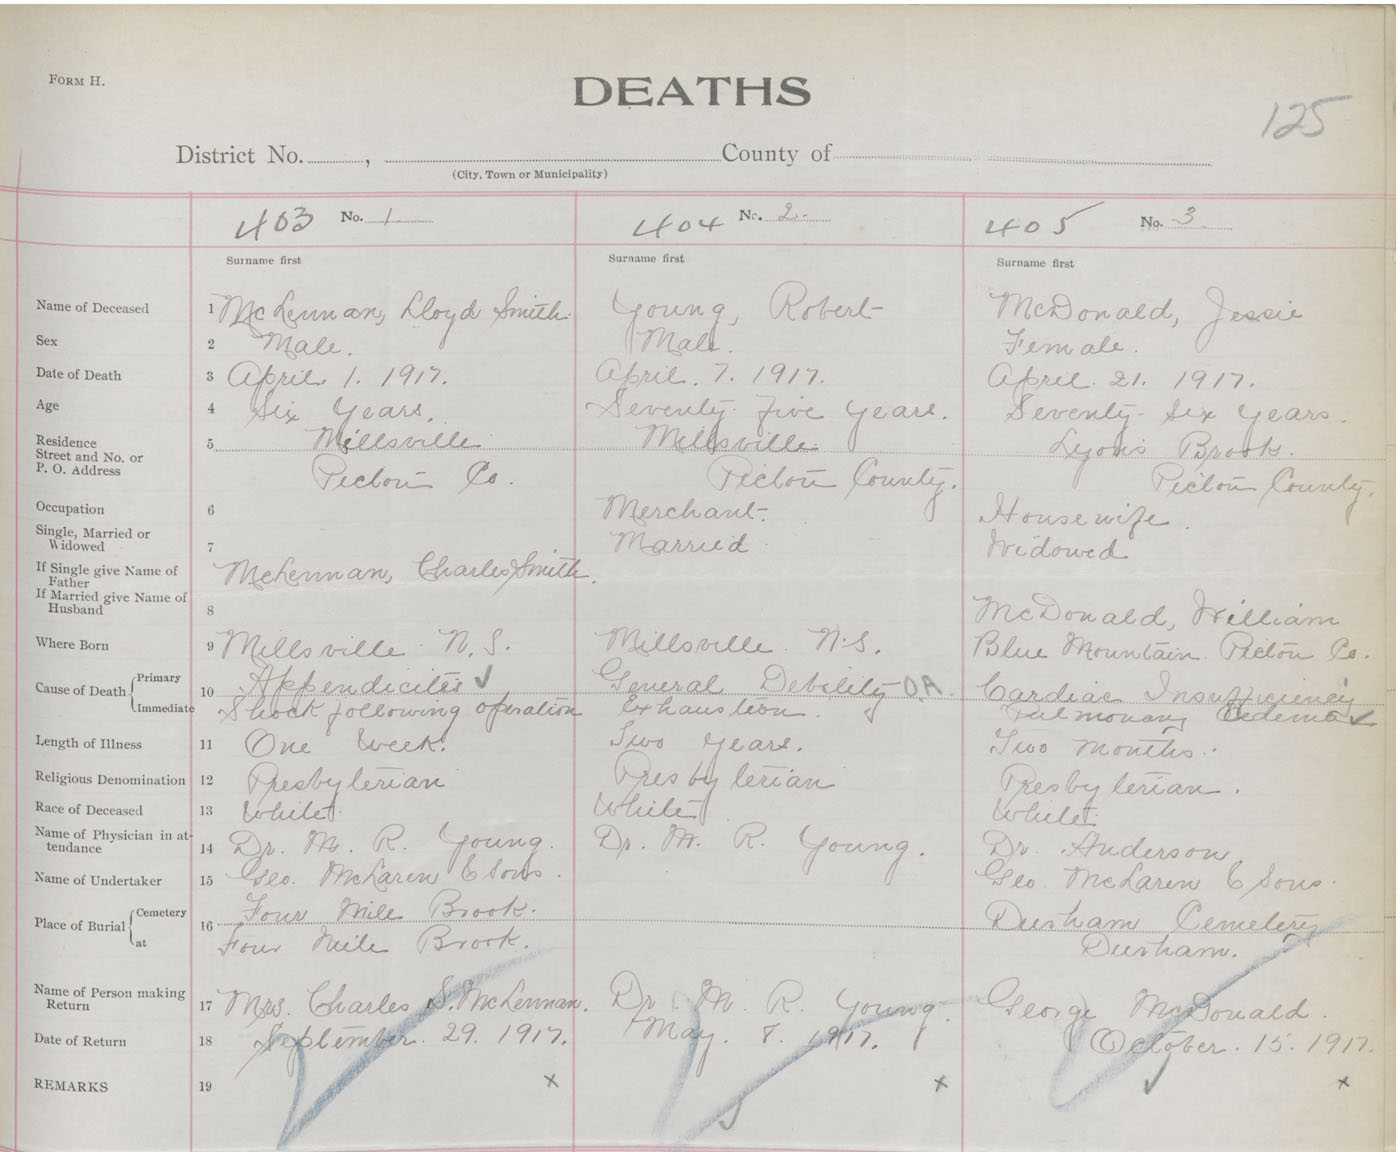 FORM H.
DEATHS
125
District No. , County of
(City, Town or Municipality)
403 No. 1 404 No. 2 405 No. 3
Surname first Surname first Surname first
Name of Deceased 1 McLennan, Lloyd Smith Young, Robert McDonald, Jessie
Sex 2 Male. Male. Female.
Date of Death 3 April 1. 1917. April. 7. 1917. April. 21. 1917.
Age 4 Six Years. Seventy five years. Seventy Six years.
Residence 5 Millsville Millsville Lyons Brook.
Street and No. or
P. O. Address Pictou Co. Pictou County. Pictou County.
Occupation 6 Merchant. Housewife.
Single, Married or
Widowed 7 Married Widowed
If Single give Name of
Father McLennan, Charles Smith.
If Married give Name of
Husband 8 McDonald, William
Where Born 9 Millsville N.S. Millsville N.S. Blue Mountain Pictou Co.
Cause of Death Primary 10 Appendicites ✓ General Debility OA Cardiac Insufficiency
Immediate Shock following operation Exhaustion. Pulmonary Oedema ✓
Length of Illness 11 One Week. Two years. Two months.
Religious Denomination 12 Presbyterian Presbyterian Presbyterian.
Race of Deceased 13 White. White White.
Name of Physician in at-
tendance 14 Dr. M. R. Young. Dr. M. R. Young. Dr. Anderson
Name of Undertaker 15 Geo. McLaren & Sons. Geo. McLaren & Sons.
Place of Burial Cemetery 16 Four Mile Brook. Durham Cemetery
at Four Mile Brook. Durham.
Name of Person making
Return 17 Mrs. Charles S. McLennan. Dr. M. R. Young. George McDonald.
Date of Return 18 September. 29. 1917. May. 8. 1917. October. 15. 1917.
REMARKS 19 x x x